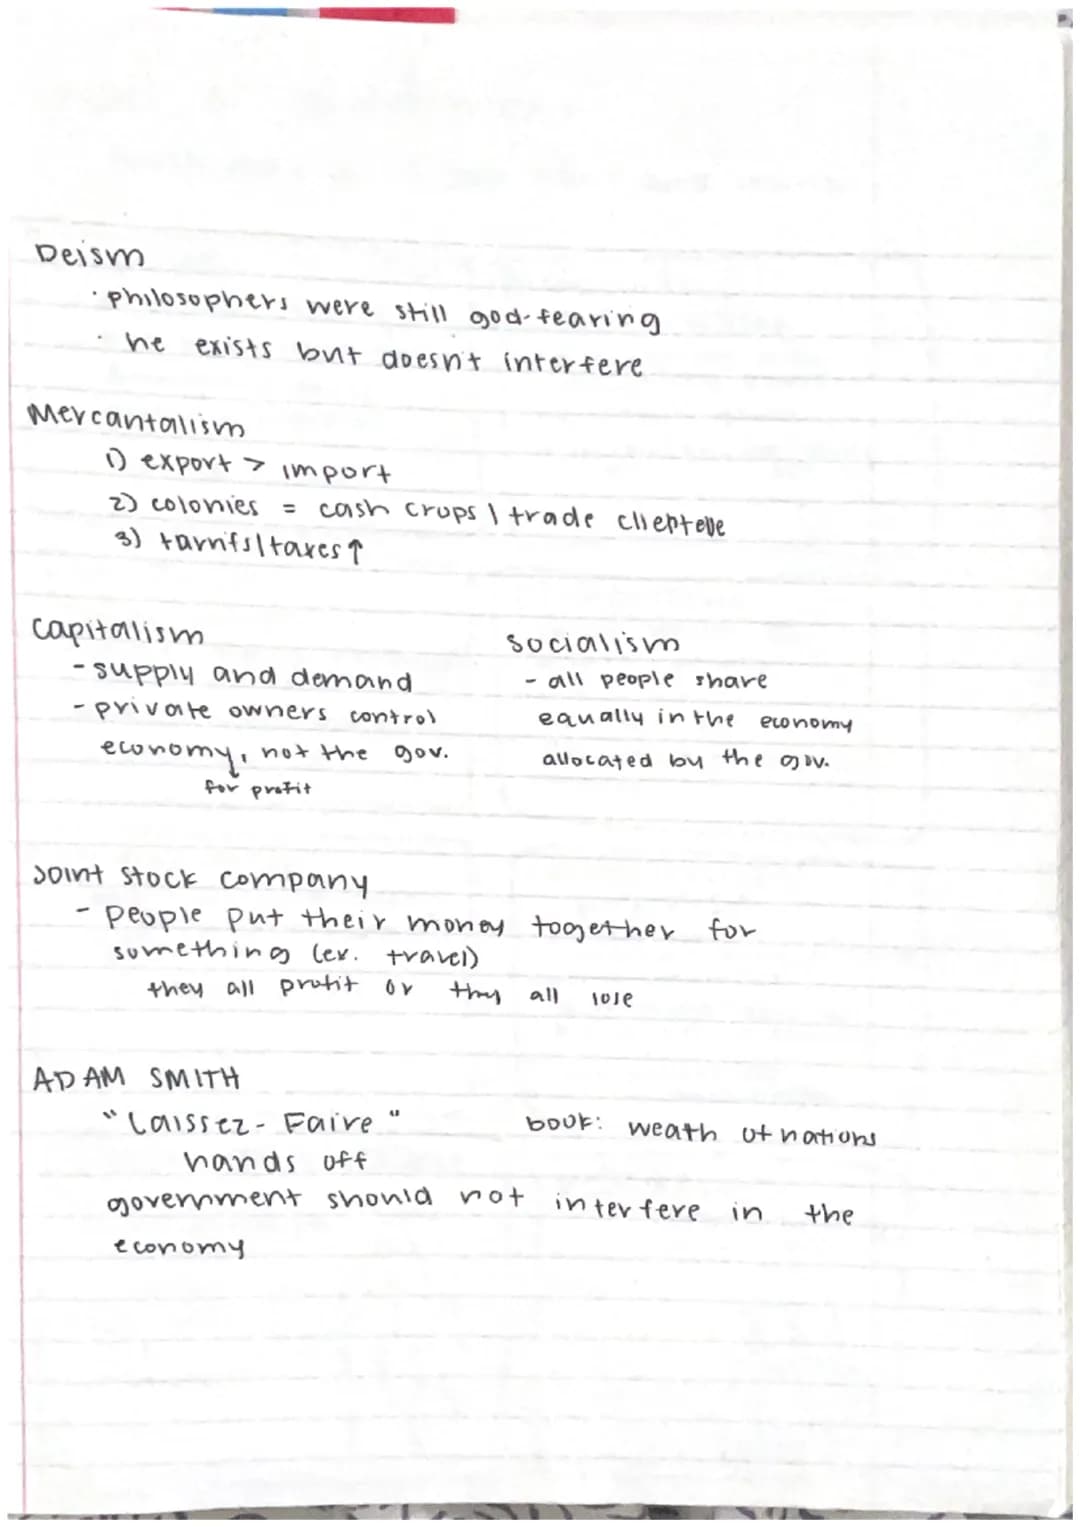 Deism
· philosophers were still god-fearing
· he exists but doesn't interfere
Mercantalism
1) export > import
2) colonies = cash crops | trade clientele
3) tarrifs | taxes ↑
Capitalism
- supply and demand
- private owners control
economy, not the gov.
↓
for profit
Socialism
- all people share
equally in the economy
allocated by the gov.
Joint Stock Company
- People put their money together for
something (ex. travel)
they all profit or they all lose
ADAM SMITH
"Laissez-Faire"
book: Weath of nations
hands off
government should not interfere in the
economy